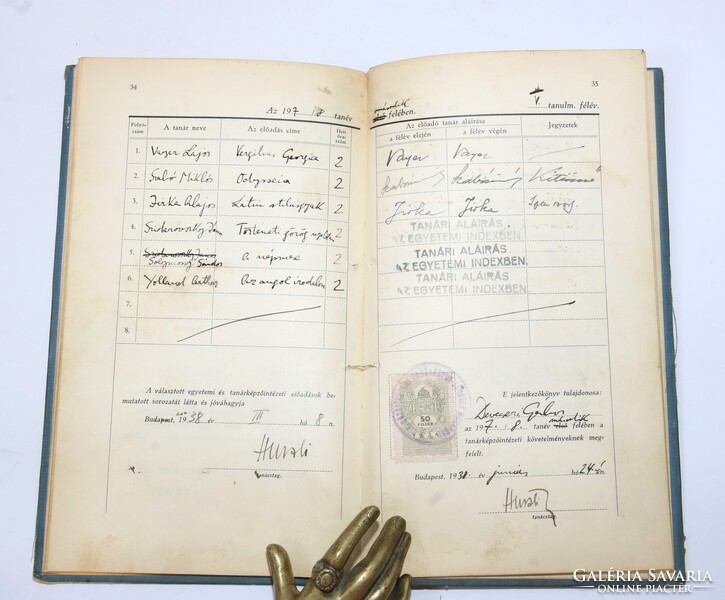 34
Az 1937/8 tanév
Folyószám
A tanár neve
Az előadás címe
Heti óraszám
1. Vayer Lajos Vergilius Georgica 2
2. Szabó Miklós Odysseia 2
3. Jirka Alajos Latin stílusgyak 2
4. Történeti görög 2
5. Solymossy Sándor A népmese 2
6. Yolland Arthur Az angol irodalom 2
7.
8.
A választott egyetemi és tanárképzőintézeti előadások be-
mutatott sorozatát látta és jóváhagyja
Budapest, 1938 év III hó 8 n.
Huszti
tanácstag.
35
második felében.
V. tanulm. félév.
Az előadó tanár aláírása
a félév elején
a félév végén
Jegyzetek
Vayer Vayer
Jirka Jirka
TANÁRI ALÁÍRÁS
AZ EGYETEMI INDEXBEN.
TANÁRI ALÁÍRÁS
AZ EGYETEMI INDEXBEN.
TANÁRI ALÁÍRÁS
AZ EGYETEMI INDEXBEN.
50
FILLÉR
E jelentkezőkönyv tulajdonosa:
Devecseri Gábor
az 1937/8. tanév második felében a
tanárképzőintézeti követelményeknek meg-
felelt.
Budapest, 1938. év június hó 24-én
Huszti
tanácstag.
GALÉRIA SAVARIA
ONLINE PIACTÉR